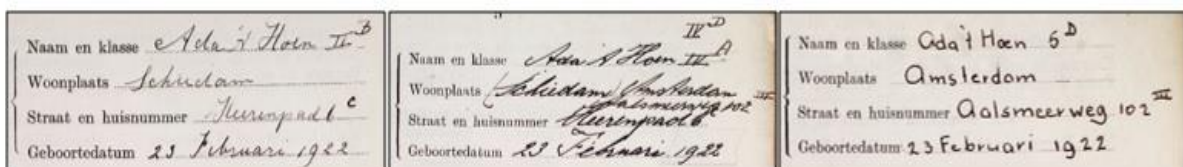 Naam en klasse Ada 't Hoen II B
Woonplaats Schiedam
Straat en huisnummer Heerenpad 6 c
Geboortedatum 23 Februari 1922
IV D
Naam en klasse Ada 't Hoen III A
Woonplaats (Schiedam) Amsterdam
Aalsmeerweg 102 III
Straat en huisnummer Heerenpad 6
Geboortedatum 23 Februari 1922
Naam en klasse Ada 't Hoen 5 D
Woonplaats Amsterdam
Straat en huisnummer Aalsmeerweg 102 III
Geboortedatum 23 Februari 1922